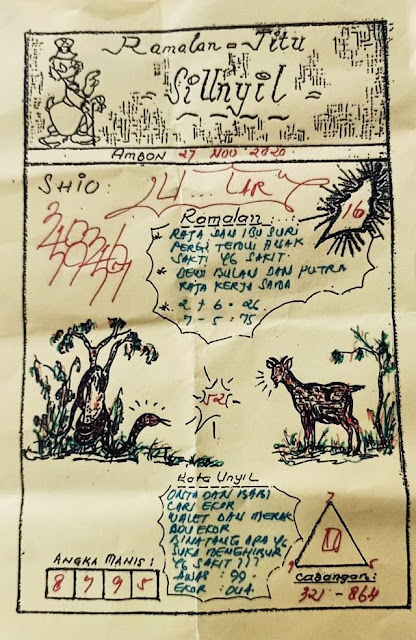 Ramalan = Jitu
= SiUnyil =
AMBON 27 NOV 2020
SHIO:
16
Ramalan:
* RATA DAN IBU SURI
PERGI TEMUI ANAK
SAKTI YG SAKIT.
* DEWI BULAN DAN PUTRA
RAJA KERJA SAMA
* 2 + 6 = 26
7 - 5 : 75
Kata Unyil
ONTA DAN BABI
CARI EKOR
WALET DAN MERAK
ADU EKOR
BINATANG APA YG
SUKA MENGHIBUR
YG SAKIT ???
AWAS : 99.
EKOR : DUA
ANGKA MANIS :
8 7 9 5
7
9 5
CABANGAN:
321 - 864